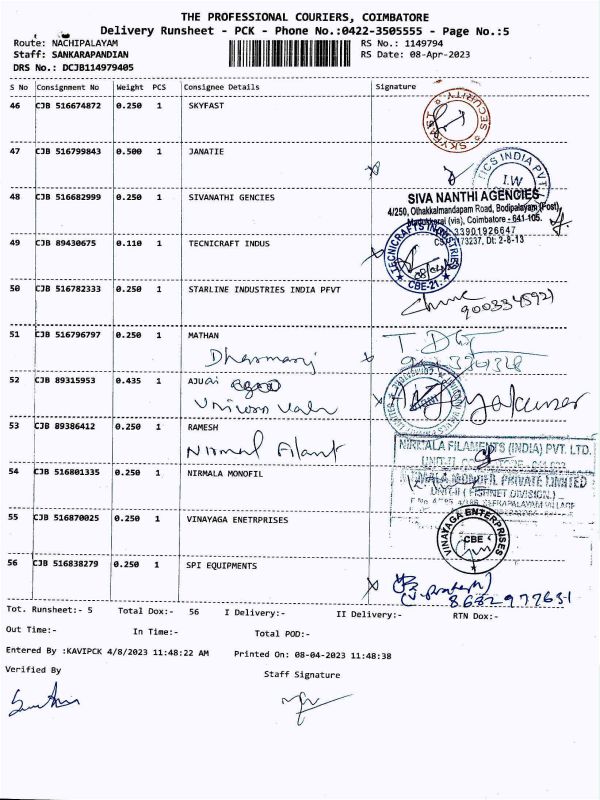 THE PROFESSIONAL COURIERS, COIMBATORE
Delivery Runsheet - PCK - Phone No.:0422-3505555 - Page No.:5
Route: NACHIPALAYAM RS No.: 1149794
Staff: SANKARAPANDIAN RS Date: 08-Apr-2023
DRS No.: DCJB114979405
S No Consignment No Weight PCS Consignee Details Signature
46 CJB 516674872 0.250 1 SKYFAST
SECURITY
47 CJB 516799843 0.500 1 JANATIE
ICS INDIA PVT
I.W
48 CJB 516682999 0.250 1 SIVANATHI GENCIES
SIVA NANTHI AGENCIES
4/250, Othakkalmandapam Road, Bodipalayam (Post),
Madukkarai (via), Coimbatore - 641-105.
33901926647
173237, Dt: 2-8-13
49 CJB 89430675 0.110 1 TECNICRAFT INDUS
TECNICRAFTS INDUSTRIES
CBE-21.
50 CJB 516782333 0.250 1 STARLINE INDUSTRIES INDIA PFVT
9003345921
51 CJB 516796797 0.250 1 MATHAN
Dharmaraj
52 CJB 89315953 0.435 1 AJUAI
Jayakumar
53 CJB 89386412 0.250 1 RAMESH
Nirmal Filant
NIRMALA FILAMENTS (INDIA) PVT. LTD.
54 CJB 516801335 0.250 1 NIRMALA MONOFIL
NIRMALA MONOFIL PRIVATE LIMITED
UNIT-II ( FISHNET DIVISION )
55 CJB 516870025 0.250 1 VINAYAGA ENETRPRISES
VINAYAGA ENTERPRISES
CBE
56 CJB 516838279 0.250 1 SPI EQUIPMENTS
Tot. Runsheet:- 5 Total Dox:- 56 I Delivery:- II Delivery:- RTN Dox:-
Out Time:- In Time:- Total POD:-
Entered By :KAVIPCK 4/8/2023 11:48:22 AM Printed On: 08-04-2023 11:48:38
Verified By Staff Signature